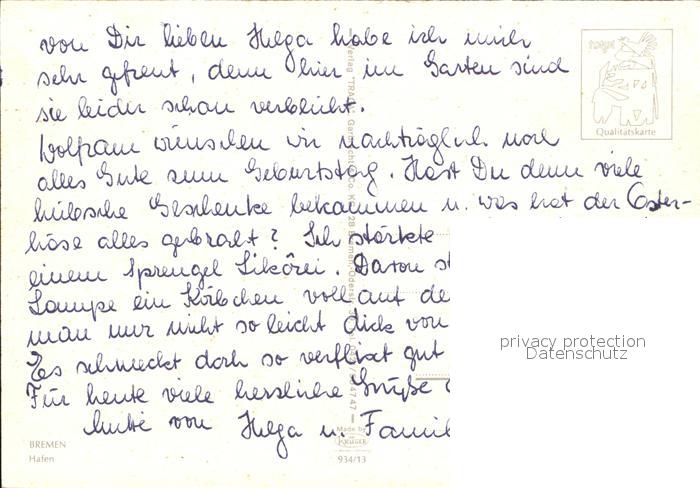 von Dir lieben Helga habe ich mich
sehr gefreut, denn hier im Garten sind
sie leider schon verblüht.
Wolfram wünschen wir nachträglich noch
alles Gute zum Geburtstag. Hast Du denn viele
hübsche Geschenke bekommen u. was hat der Oster-
häse alles gebracht? Ich stärkte
einem Sprengel Likörei. Davon st
Lampe ein Körbchen voll auf de
man nur nicht so leicht dick von
Es schmeckt doch so verflixt gut
Für heute viele herzliche Grüße
von Helga u. Famil
Qualitätskarte
privacy protection
Datenschutz
BREMEN
Hafen
Made by
KRÜGER
934/13